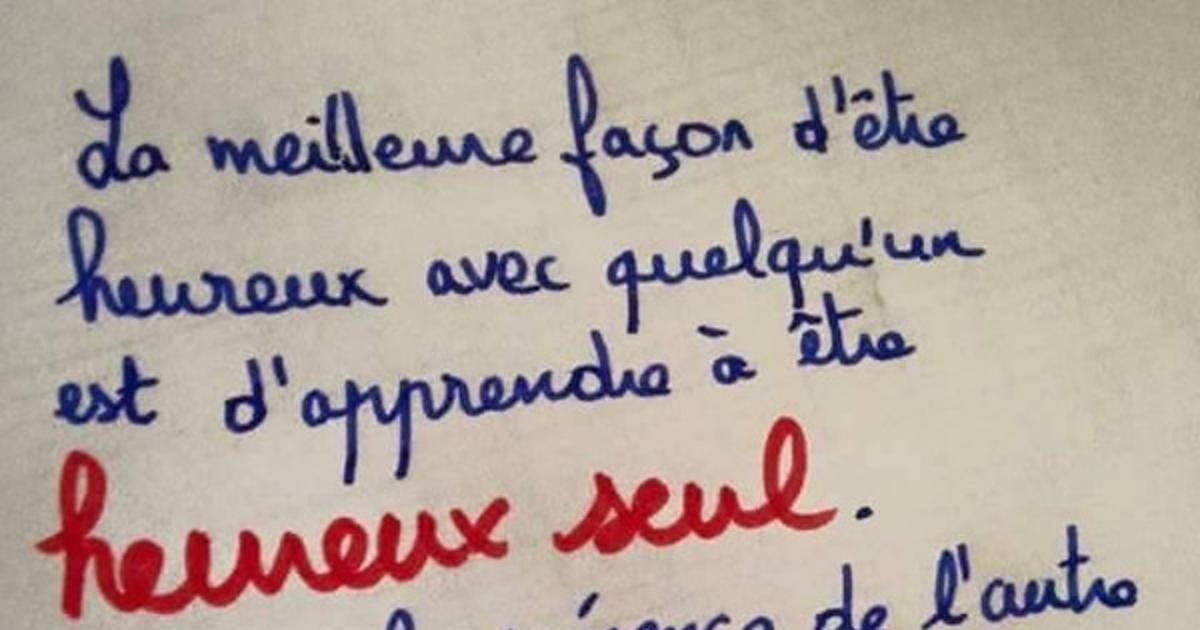 La meilleure façon d'être
heureux avec quelqu'un
est d'apprendre à être
heureux seul.
de l'autre